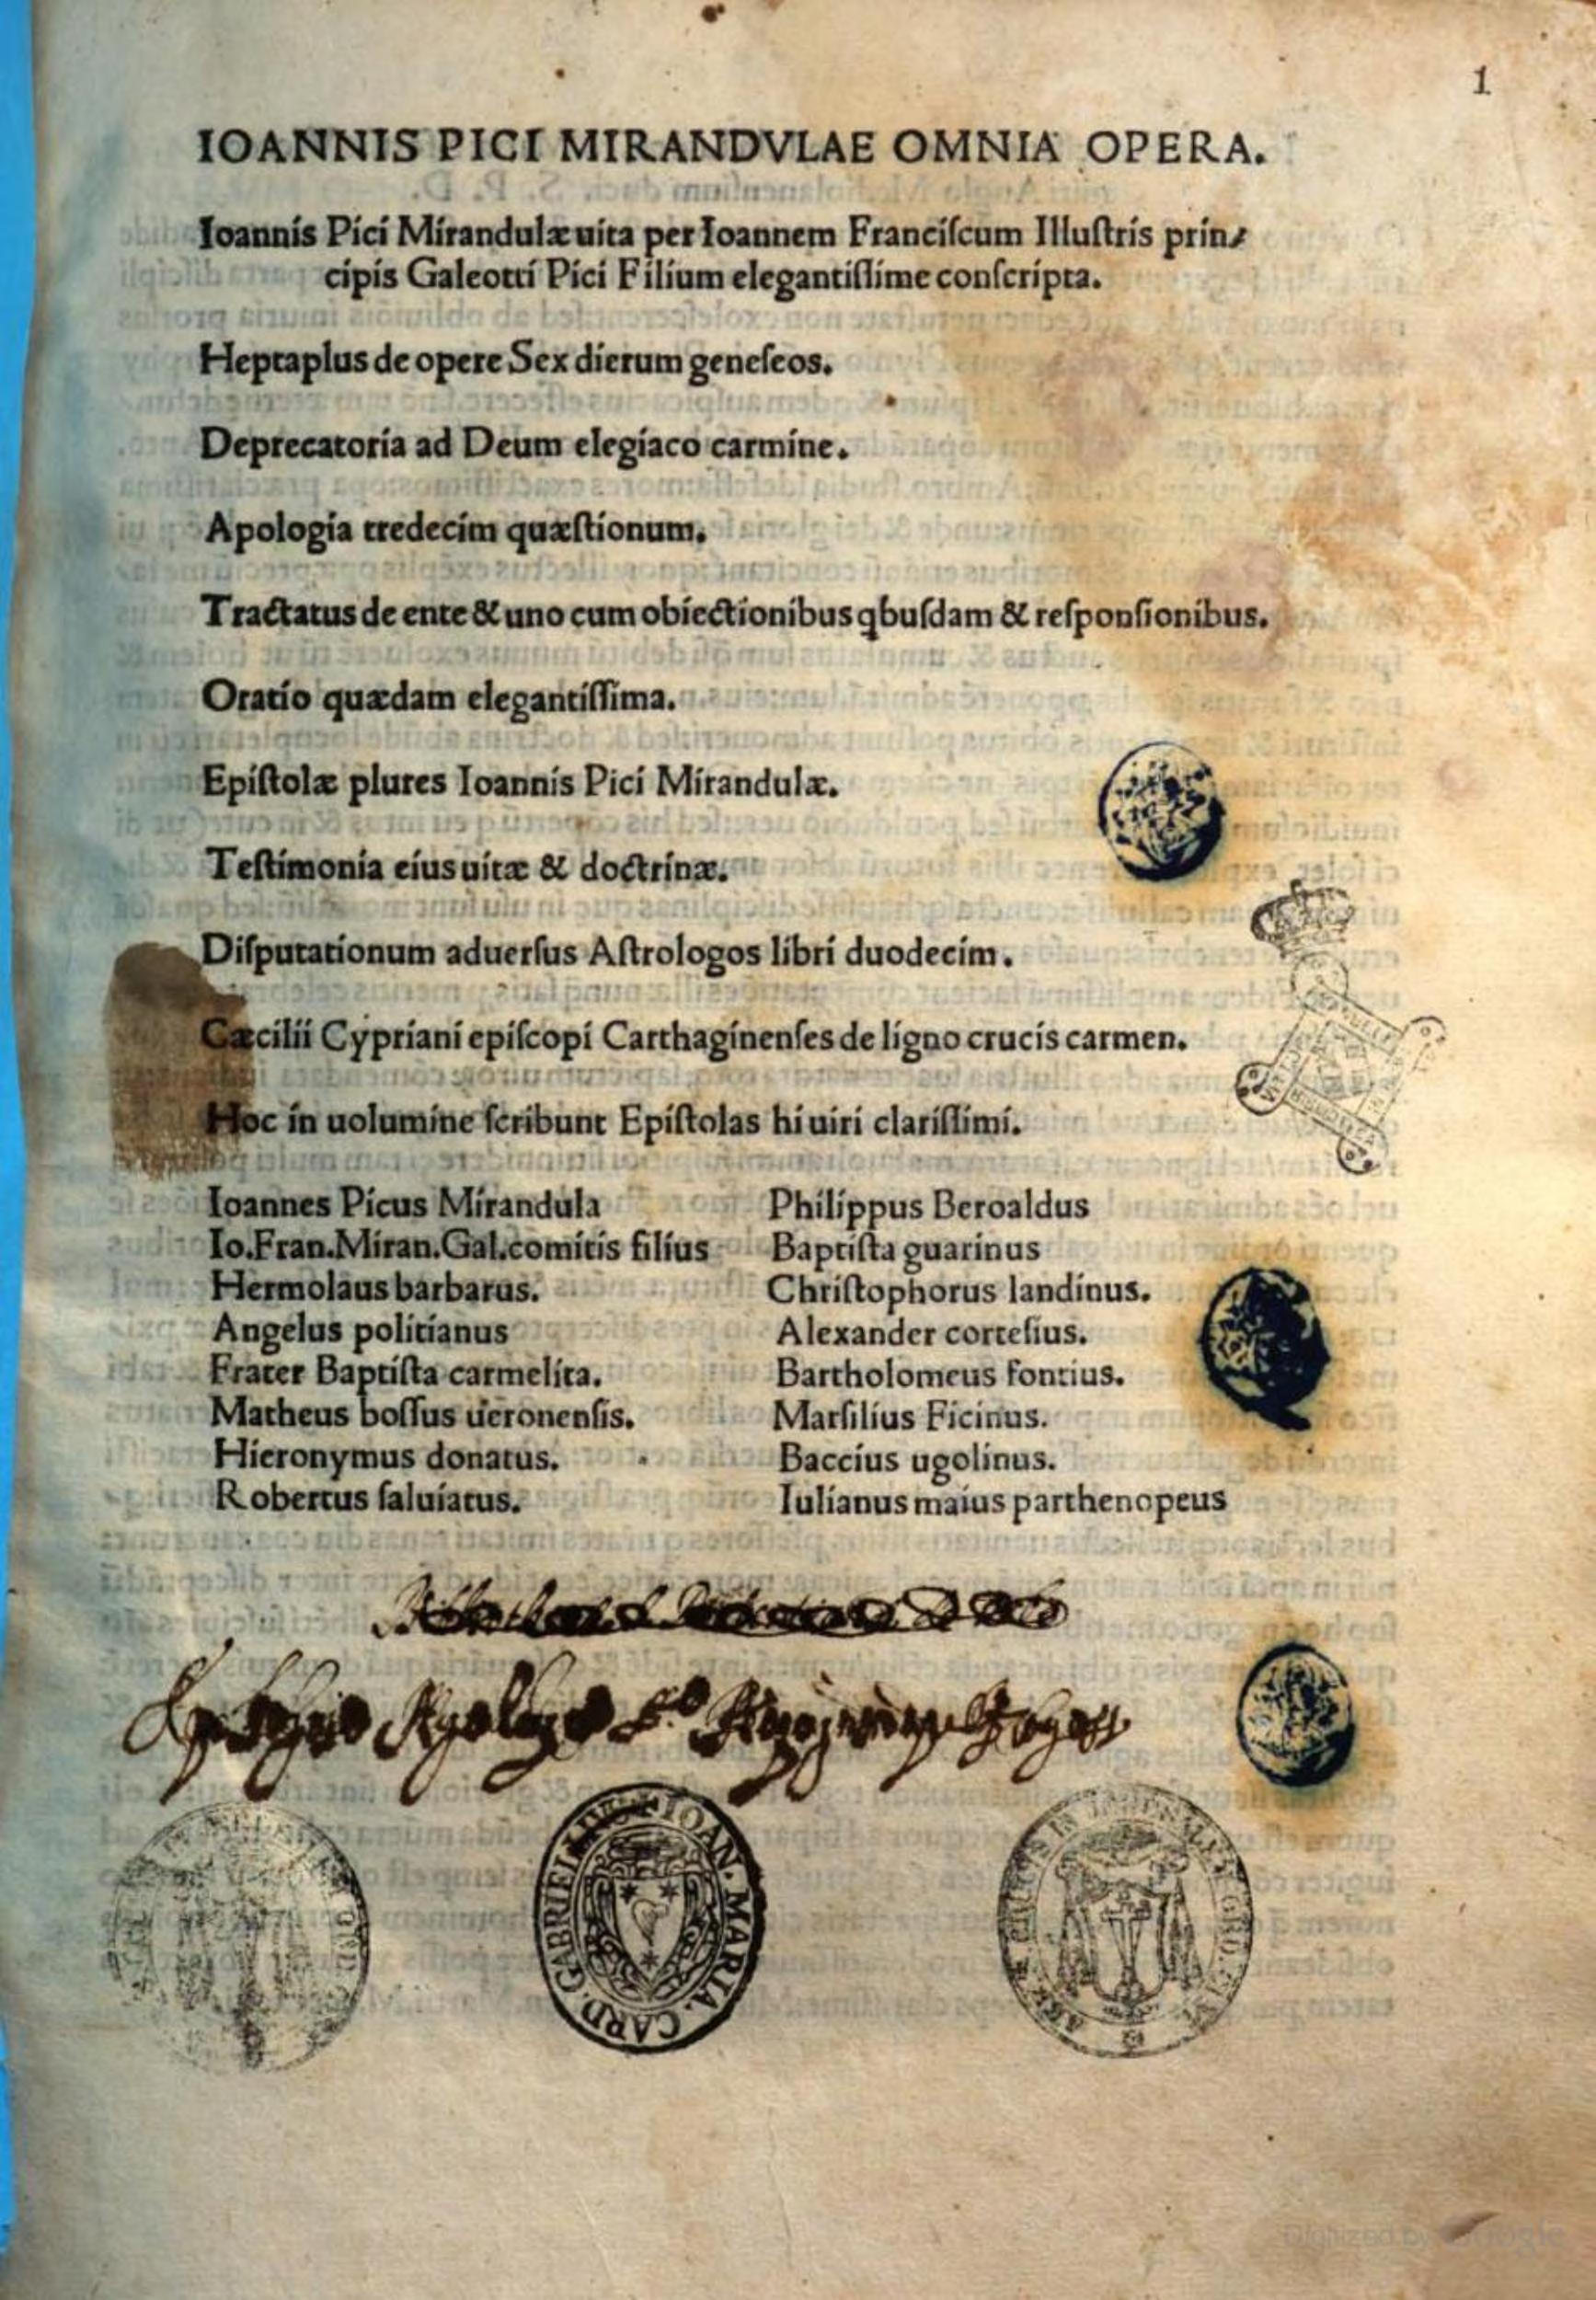 1
IOANNIS PICI MIRANDVLAE OMNIA OPERA.
Ioannis Pici Mirandulæ uita per Ioannem Franciſcum Illuſtris prin⸗
cipis Galeotti Pici Filium elegantiſſime conſcripta.
Heptaplus de opere Sex dierum geneſeos.
Deprecatoria ad Deum elegiaco carmine.
Apologia tredecim quæſtionum.
Tractatus de ente & uno cum obiectionibus qbuſdam & reſponſionibus.
Oratio quædam elegantiſſima.
Epiſtolæ plures Ioannis Pici Mirandulæ.
Teſtimonia eius uitæ & doctrinæ.
Diſputationum aduerſus Aſtrologos libri duodecim.
Cæcilii Cypriani epiſcopi Carthaginenſes de ligno crucis carmen.
Hoc in uolumine ſcribunt Epiſtolas hi uiri clariſſimi.
Ioannes Picus Mirandula
Io.Fran.Miran.Gal.comitis filius
Hermolaus barbarus.
Angelus politianus
Frater Baptiſta carmelita.
Matheus boſſus ueronenſis.
Hieronymus donatus.
Robertus ſaluiatus.
Philippus Beroaldus
Baptiſta guarinus
Chriſtophorus landinus.
Alexander corteſius.
Bartholomeus fontius.
Marſilius Ficinus.
Baccius ugolinus.
Iulianus maius parthenopeus
IOAN. MARIA. CARD. GABRIELLIUS
Digitized by Google